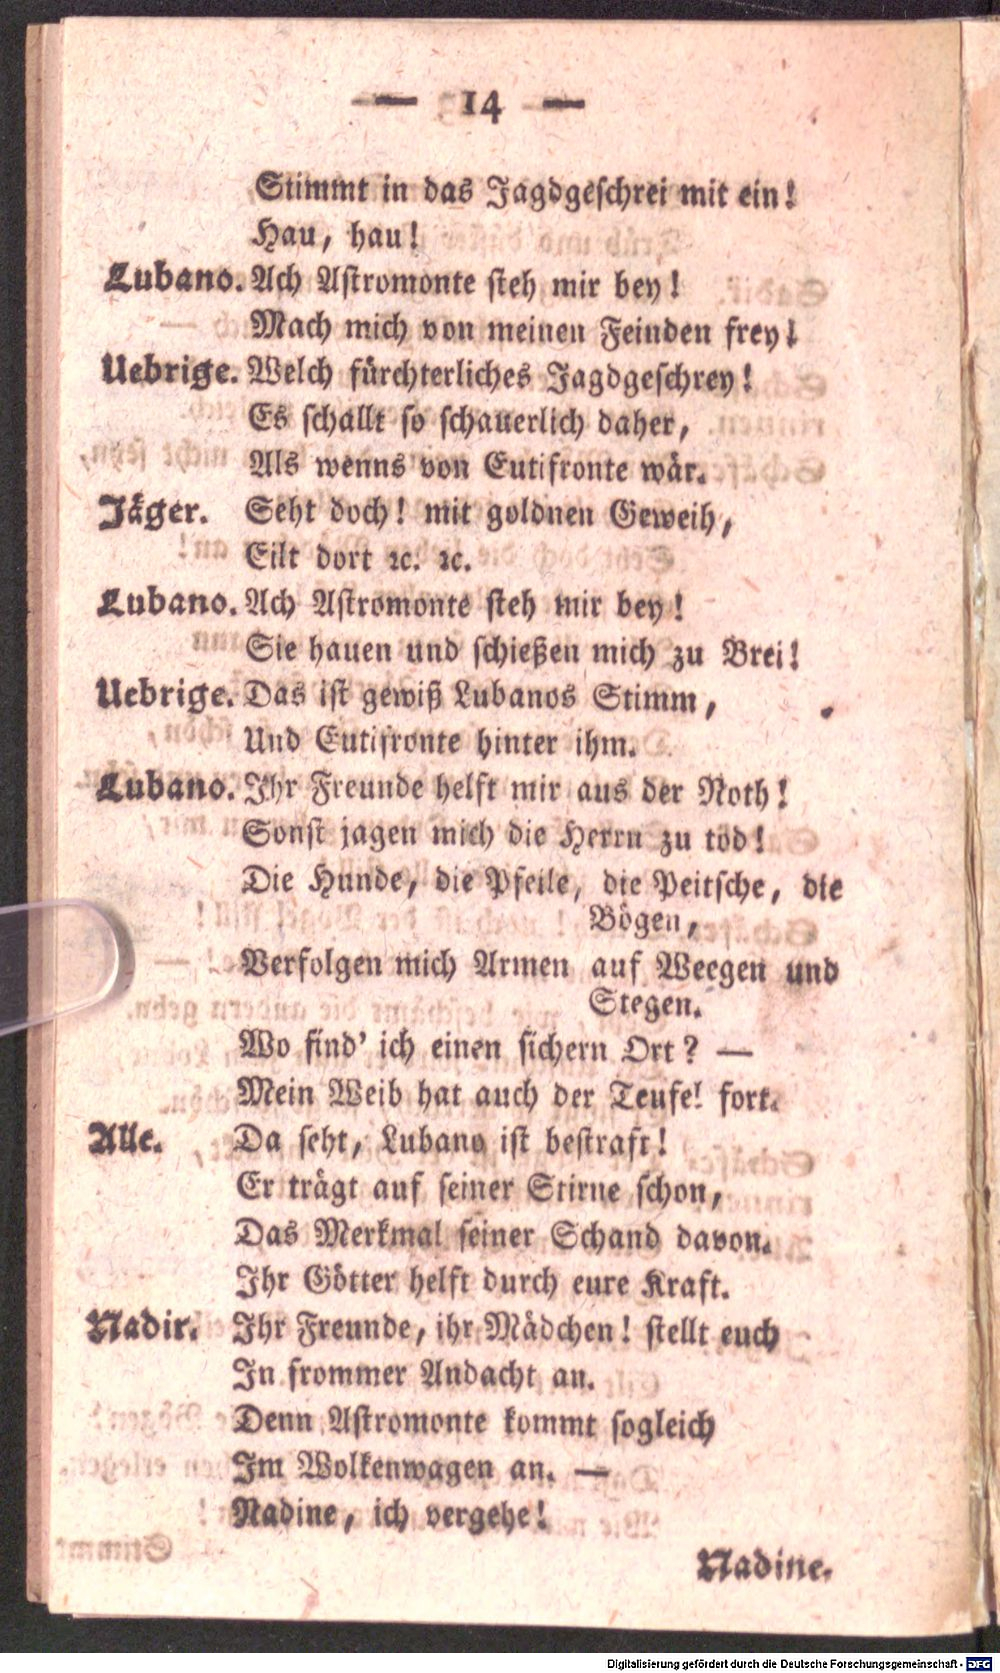 — 14 —
Stimmt in das Jagdgeschrei mit ein!
Hau, hau!
Lubano. Ach Astromonte steh mir bey!
Mach mich von meinen Feinden frey!
Uebrige. Welch fürchterliches Jagdgeschrey!
Es schallt so schauerlich daher,
Als wenns von Eutifronte wär.
Jäger. Seht doch! mit goldnen Geweih,
Eilt dort ꝛc. ꝛc.
Lubano. Ach Astromonte steh mir bey!
Sie hauen und schießen mich zu Brei!
Uebrige. Das ist gewiß Lubanos Stimm,
Und Eutifronte hinter ihm.
Lubano. Ihr Freunde helft mir aus der Noth!
Sonst jagen mich die Herrn zu tod!
Die Hunde, die Pfeile, die Peitsche, die
Bögen,
Verfolgen mich Armen auf Weegen und
Stegen.
Wo find' ich einen sichern Ort? —
Mein Weib hat auch der Teufel fort.
Alle. Da seht, Lubano ist bestraft!
Er trägt auf seiner Stirne schon,
Das Merkmal seiner Schand davon.
Ihr Götter helft durch eure Kraft.
Nadir. Ihr Freunde, ihr Mädchen! stellt euch
In frommer Andacht an.
Denn Astromonte kommt sogleich
Im Wolkenwagen an. —
Nadine, ich vergehe!
Nadine.
Digitalisierung gefördert durch die Deutsche Forschungsgemeinschaft - DFG